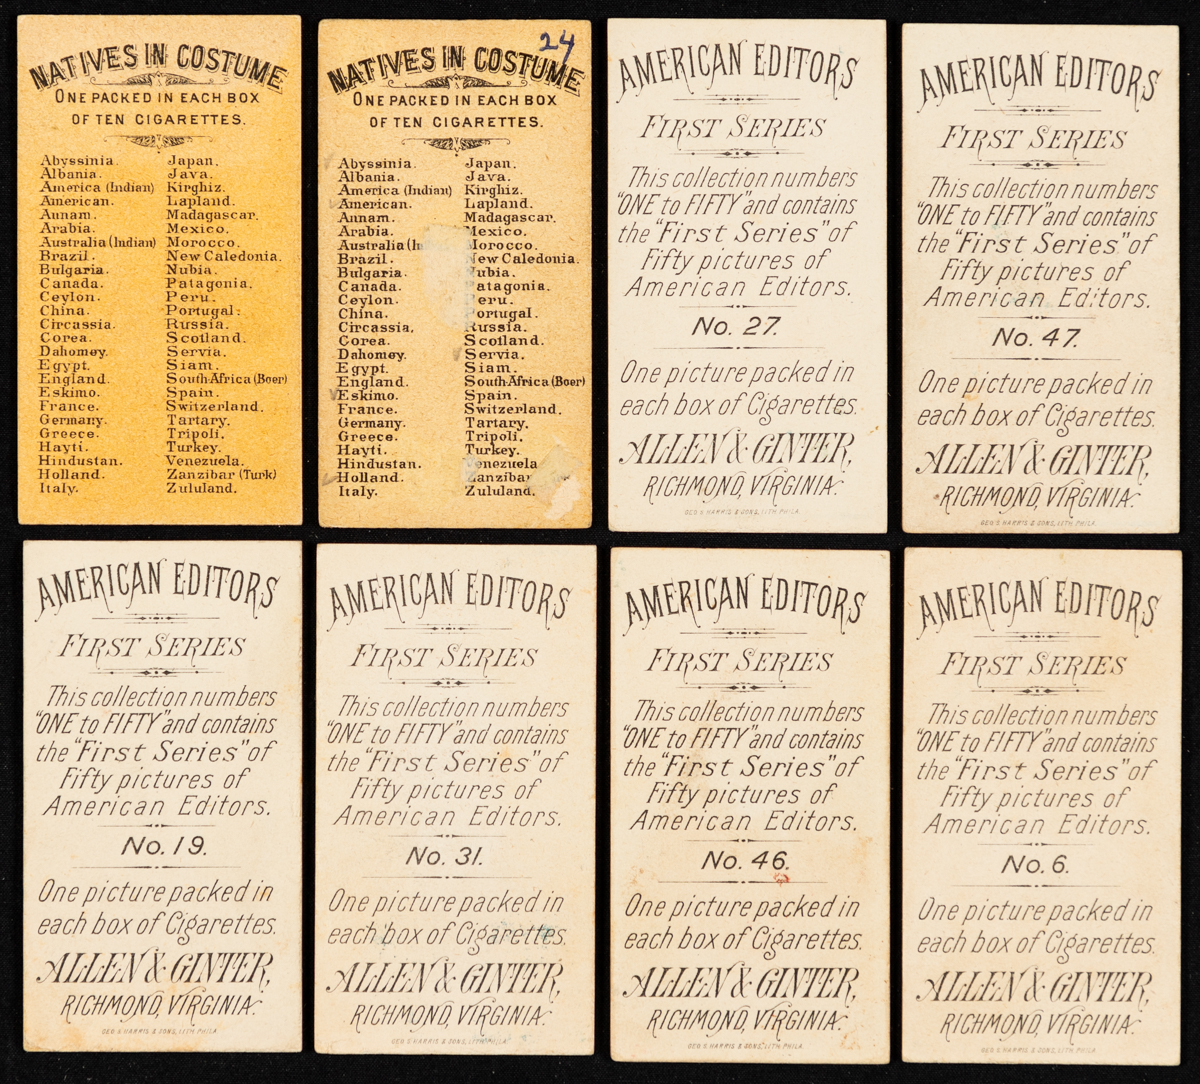 NATIVES IN COSTUME
ONE PACKED IN EACH BOX
OF TEN CIGARETTES.
Abyssinia.
Albania.
America (Indian)
American.
Annam.
Arabia.
Australia (Indian)
Brazil.
Bulgaria.
Canada.
Ceylon.
China.
Circassia.
Corea.
Dahomey.
Egypt.
England.
Eskimo.
France.
Germany.
Greece.
Hayti.
Hindustan.
Holland.
Italy.
Japan.
Java.
Kirghiz.
Lapland.
Madagascar.
Mexico.
Morocco.
New Caledonia.
Nubia.
Patagonia.
Peru.
Portugal.
Russia.
Scotland.
Servia.
Siam.
South Africa (Boer)
Spain.
Switzerland.
Tartary.
Tripoli.
Turkey.
Venezuela.
Zanzibar (Turk)
Zululand.
24
NATIVES IN COSTUME
ONE PACKED IN EACH BOX
OF TEN CIGARETTES.
Abyssinia.
Albania.
America (Indian)
American.
Annam.
Arabia.
Australia (In
Brazil.
Bulgaria.
Canada.
Ceylon.
China.
Circassia.
Corea.
Dahomey.
Egypt.
England.
Eskimo.
France.
Germany.
Greece.
Hayti.
Hindustan.
Holland.
Italy.
Japan.
Java.
Kirghiz.
Lapland.
Madagascar.
Mexico.
Morocco.
New Caledonia.
Nubia.
atagonia.
Peru.
Portugal.
Russia.
Scotland.
Servia.
Siam.
South Africa (Boer)
Spain.
Switzerland.
Tartary.
Tripoli.
Turkey.
Venezuela
Zanzibar
Zululand.
AMERICAN EDITORS
FIRST SERIES
This collection numbers
"ONE to FIFTY" and contains
the "First Series" of
Fifty pictures of
American Editors.
No. 27.
One picture packed in
each box of Cigarettes.
ALLEN & GINTER,
RICHMOND, VIRGINIA.
GEO. S. HARRIS & SONS, LITH. PHILA.
AMERICAN EDITORS
FIRST SERIES
This collection numbers
"ONE to FIFTY" and contains
the "First Series" of
Fifty pictures of
American Editors.
No. 47.
One picture packed in
each box of Cigarettes.
ALLEN & GINTER,
RICHMOND, VIRGINIA.
GEO. S. HARRIS & SONS, LITH. PHILA.
AMERICAN EDITORS
FIRST SERIES
This collection numbers
"ONE to FIFTY" and contains
the "First Series" of
Fifty pictures of
American Editors.
No. 19.
One picture packed in
each box of Cigarettes.
ALLEN & GINTER,
RICHMOND, VIRGINIA.
GEO. S. HARRIS & SONS, LITH. PHILA.
AMERICAN EDITORS
FIRST SERIES
This collection numbers
"ONE to FIFTY" and contains
the "First Series" of
Fifty pictures of
American Editors.
No. 31.
One picture packed in
each box of Cigarettes.
ALLEN & GINTER,
RICHMOND, VIRGINIA.
GEO. S. HARRIS & SONS, LITH. PHILA.
AMERICAN EDITORS
FIRST SERIES
This collection numbers
"ONE to FIFTY" and contains
the "First Series" of
Fifty pictures of
American Editors.
No. 46.
One picture packed in
each box of Cigarettes.
ALLEN & GINTER,
RICHMOND, VIRGINIA.
GEO. S. HARRIS & SONS, LITH. PHILA.
AMERICAN EDITORS
FIRST SERIES
This collection numbers
"ONE to FIFTY" and contains
the "First Series" of
Fifty pictures of
American Editors.
No. 6.
One picture packed in
each box of Cigarettes.
ALLEN & GINTER,
RICHMOND, VIRGINIA.
GEO. S. HARRIS & SONS, LITH. PHILA.